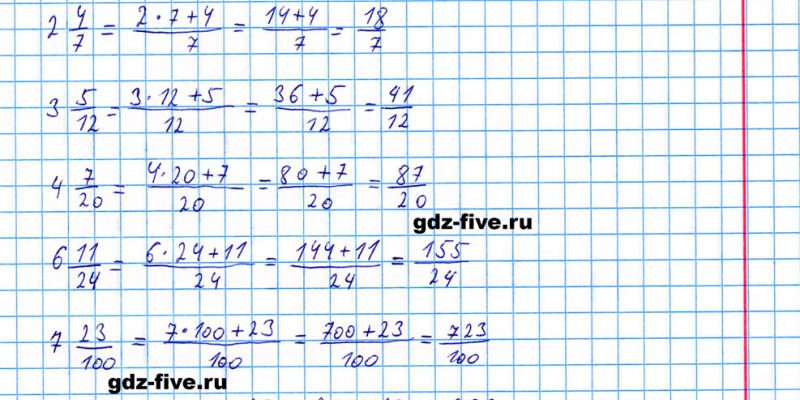 2 4/7 = (2·7+4)/7 = (14+4)/7 = 18/7
3 5/12 = (3·12+5)/12 = (36+5)/12 = 41/12
4 7/20 = (4·20+7)/20 = (80+7)/20 = 87/20
gdz-five.ru
6 11/24 = (6·24+11)/24 = (144+11)/24 = 155/24
7 23/100 = (7·100+23)/100 = (700+23)/100 = 723/100
gdz-five.ru